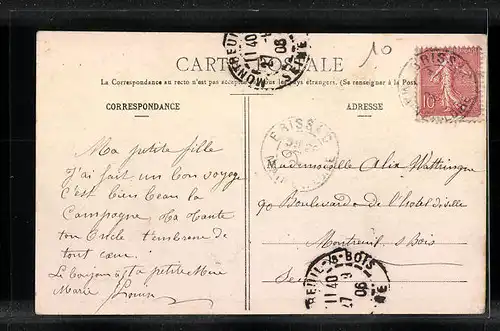 10
CARTE POSTALE
La Correspondance au recto n'est pas acceptée par tous les pays étrangers. (Se renseigner à la Poste
CORRESPONDANCE
ADRESSE
Ma petite fille
J'ai fait un bon voyage
C'est bien beau la
Campagne, Ta Tante
ton Oncle t'embrasse de
tout cœur.
Le bonjour à ta petite
Marie Louise
Mademoiselle Alix
90 Boulevard de l'hotel de ville
Montreuil s Bois
MONTREUIL
SEINE
11 40
08
10
BRISSAC
MAINE
BRISSAC
MONTREUIL-s-BOIS
11 40
08